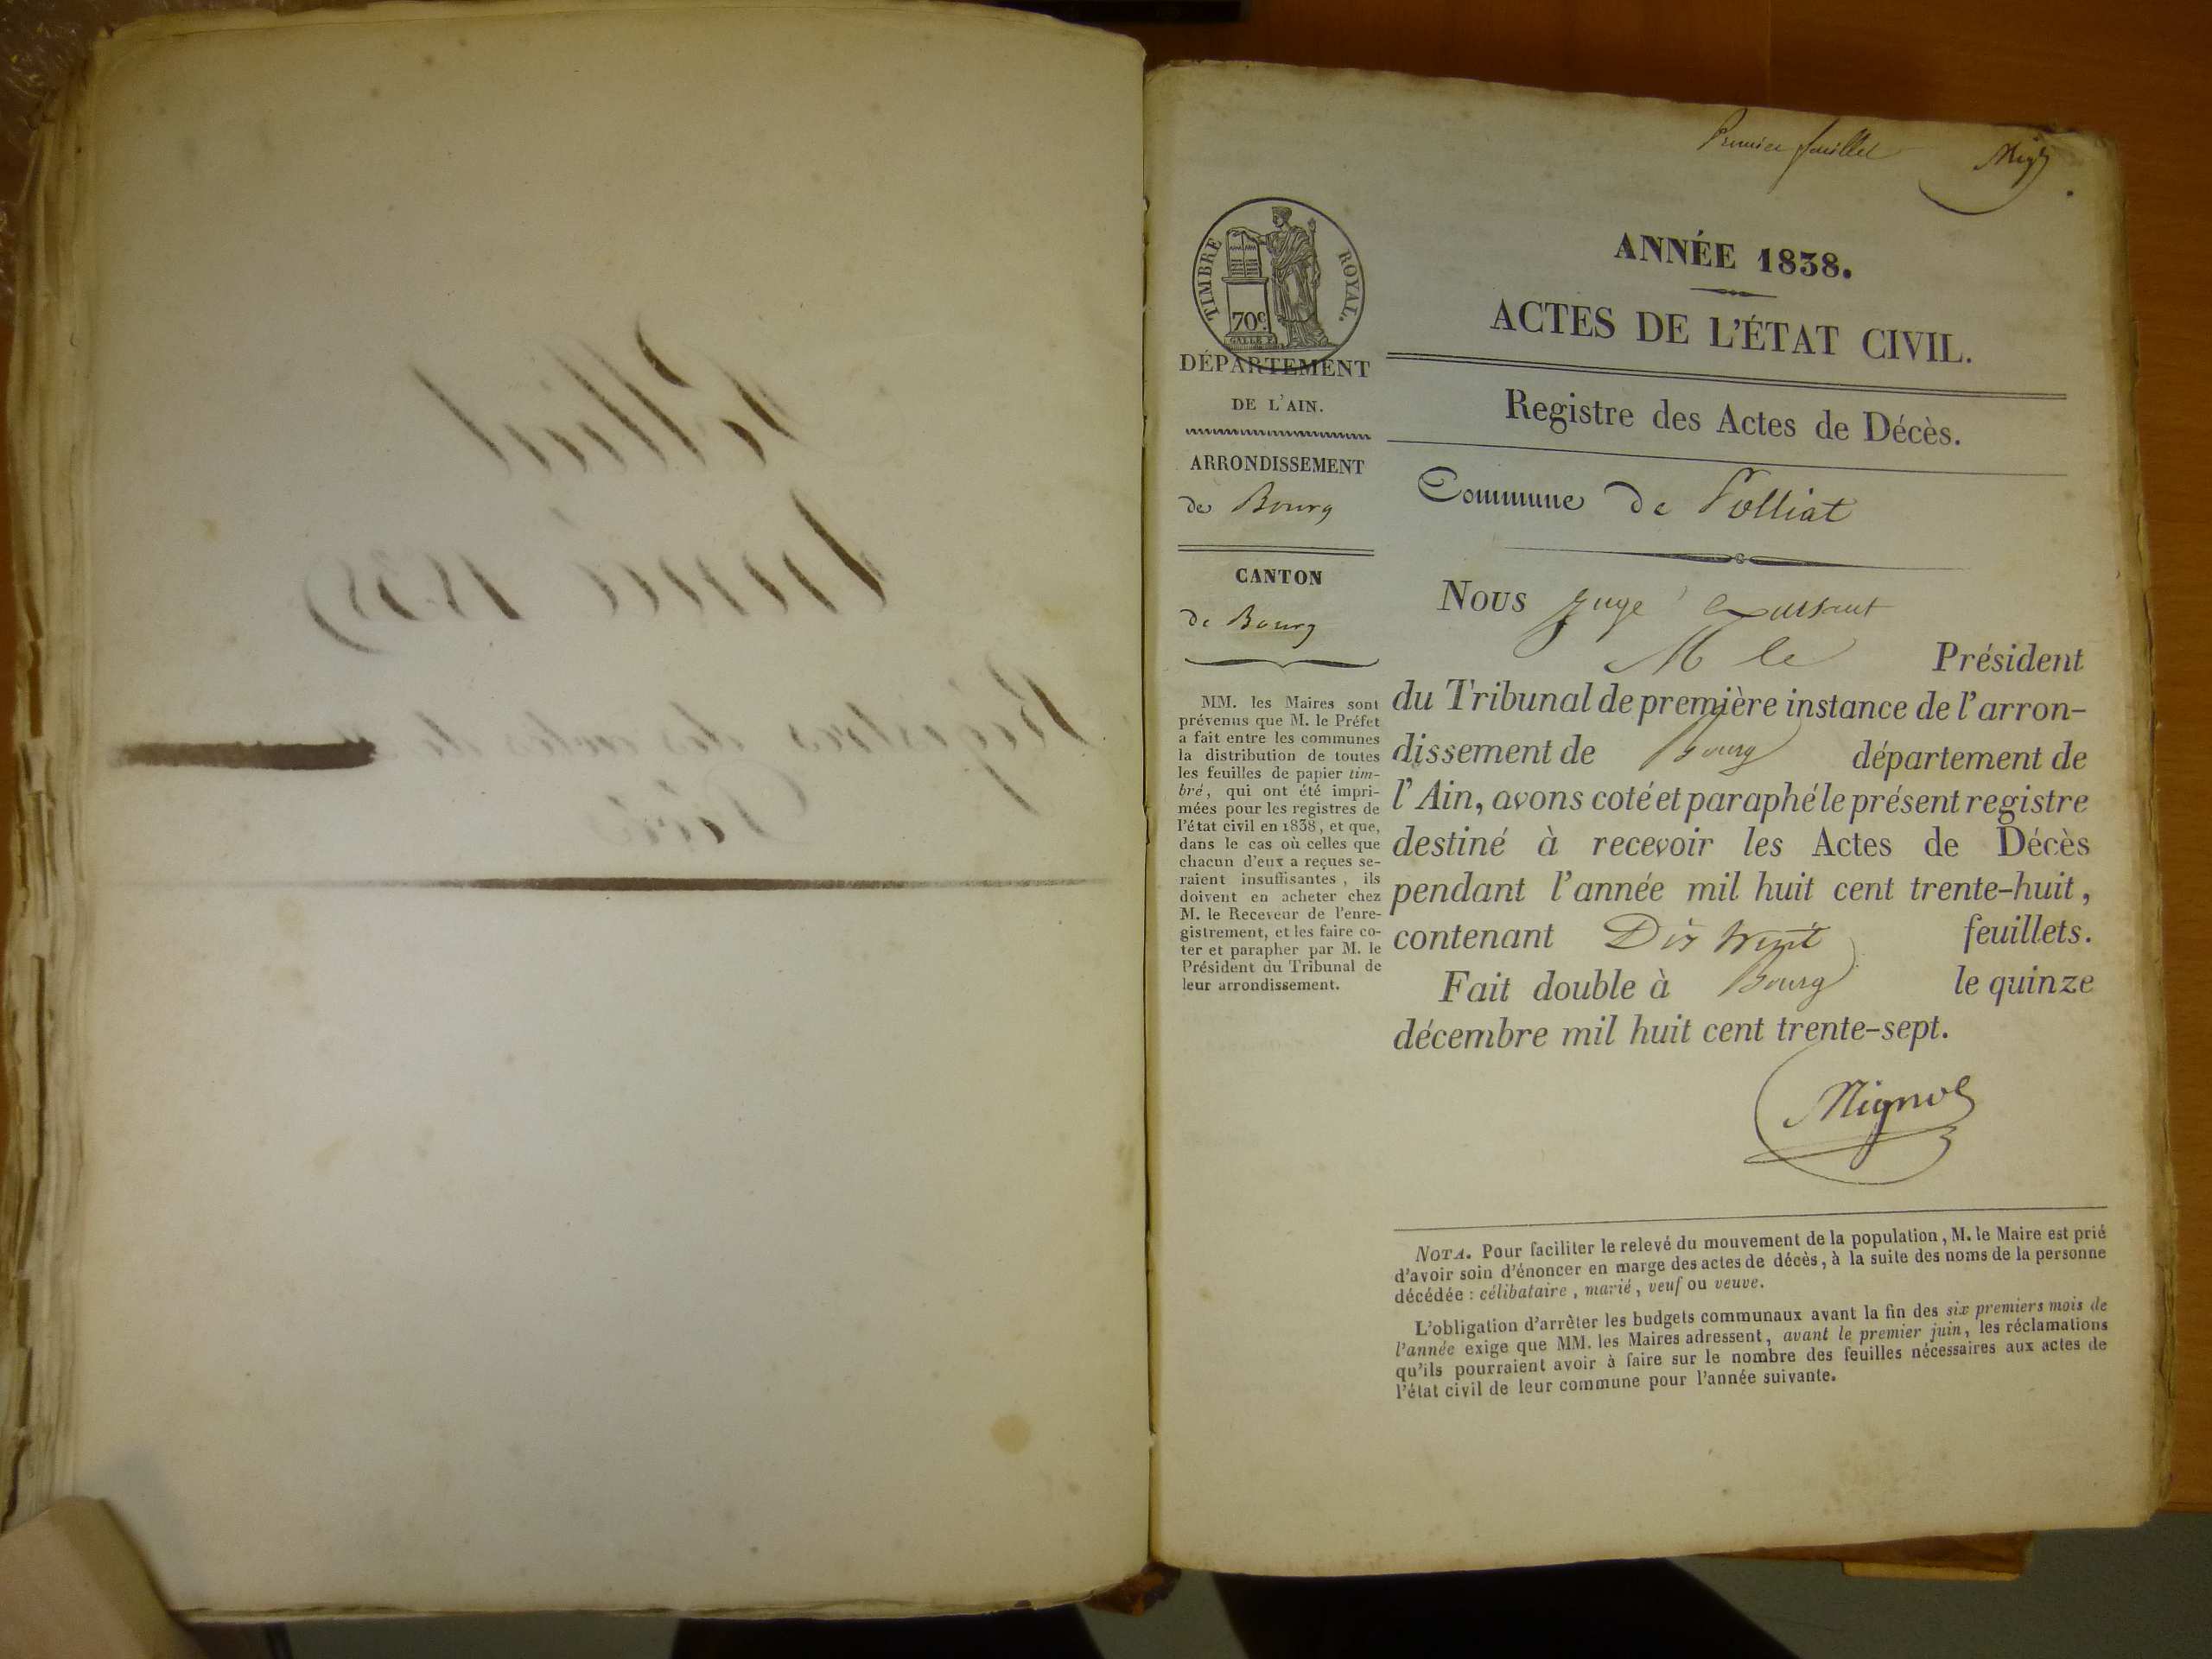 Polliat
Année 1838
Registres des actes de
Décès
Premier feuillet
ANNÉE 1838.
ACTES DE L'ÉTAT CIVIL.
Registre des Actes de Décès.
TIMBRE ROYAL.
70c.
DÉPARTEMENT
DE L'AIN.
ARRONDISSEMENT
de Bourg
CANTON
de Bourg
MM. les Maires sont
prévenus que M. le Préfet
a fait entre les communes
la distribution de toutes
les feuilles de papier tim-
bré, qui ont été impri-
mées pour les registres de
l'état civil en 1838, et que,
dans le cas où celles que
chacun d'eux a reçues se-
raient insuffisantes, ils
doivent en acheter chez
M. le Receveur de l'enre-
gistrement, et les faire co-
ter et parapher par M. le
Président du Tribunal de
leur arrondissement.
Commune de Polliat
Nous juge
M le Président
du Tribunal de première instance de l'arron-
dissement de Bourg département de
l'Ain, avons coté et paraphé le présent registre
destiné à recevoir les Actes de Décès
pendant l'année mil huit cent trente-huit,
contenant Dix feuillets.
Fait double à Bourg le quinze
décembre mil huit cent trente-sept.
NOTA. Pour faciliter le relevé du mouvement de la population, M. le Maire est prié
d'avoir soin d'énoncer en marge des actes de décès, à la suite des noms de la personne
décédée : célibataire, marié, veuf ou veuve.
L'obligation d'arrêter les budgets communaux avant la fin des six premiers mois de
l'année exige que MM. les Maires adressent, avant le premier juin, les réclamations
qu'ils pourraient avoir à faire sur le nombre des feuilles nécessaires aux actes de
l'état civil de leur commune pour l'année suivante.